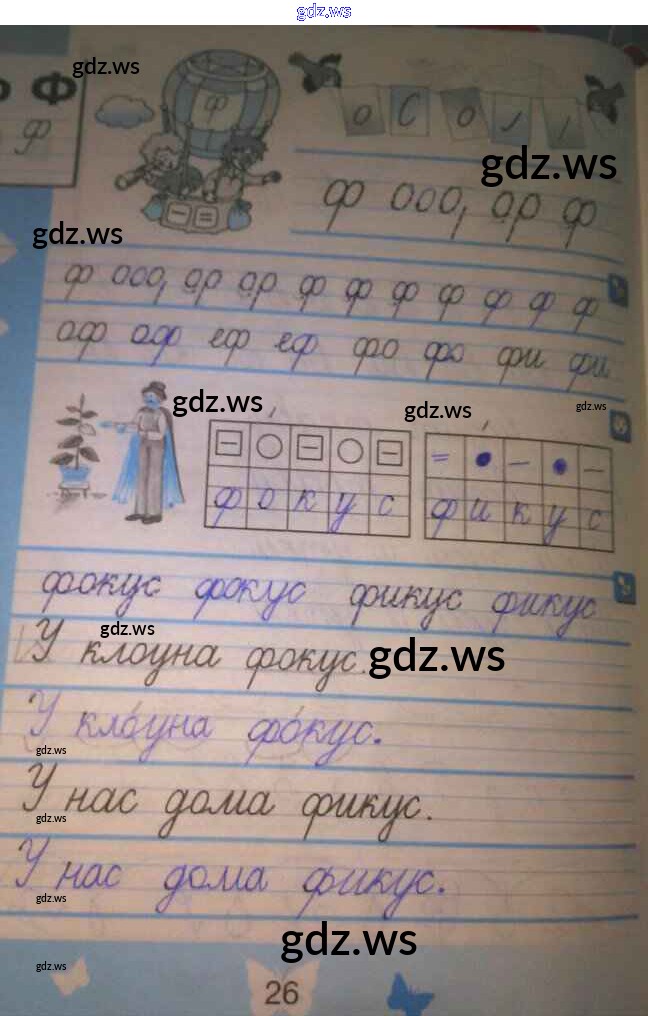 gdz.ws
gdz.ws
Ф
ф
ф
о с о
gdz.ws
ф ооо, ор ф
gdz.ws
ф ооо, ор ор ф ф ф ф ф ф ф
оф оф еф еф фо фо фи фи
gdz.ws
gdz.ws
gdz.ws
ф о к у с
ф и к у с
фокус фокус фикус фикус
gdz.ws
У клоуна фокус.
gdz.ws
У кло́уна фо́кус.
gdz.ws
У нас дома фикус.
gdz.ws
У нас дома фикус.
gdz.ws
gdz.ws
gdz.ws
26